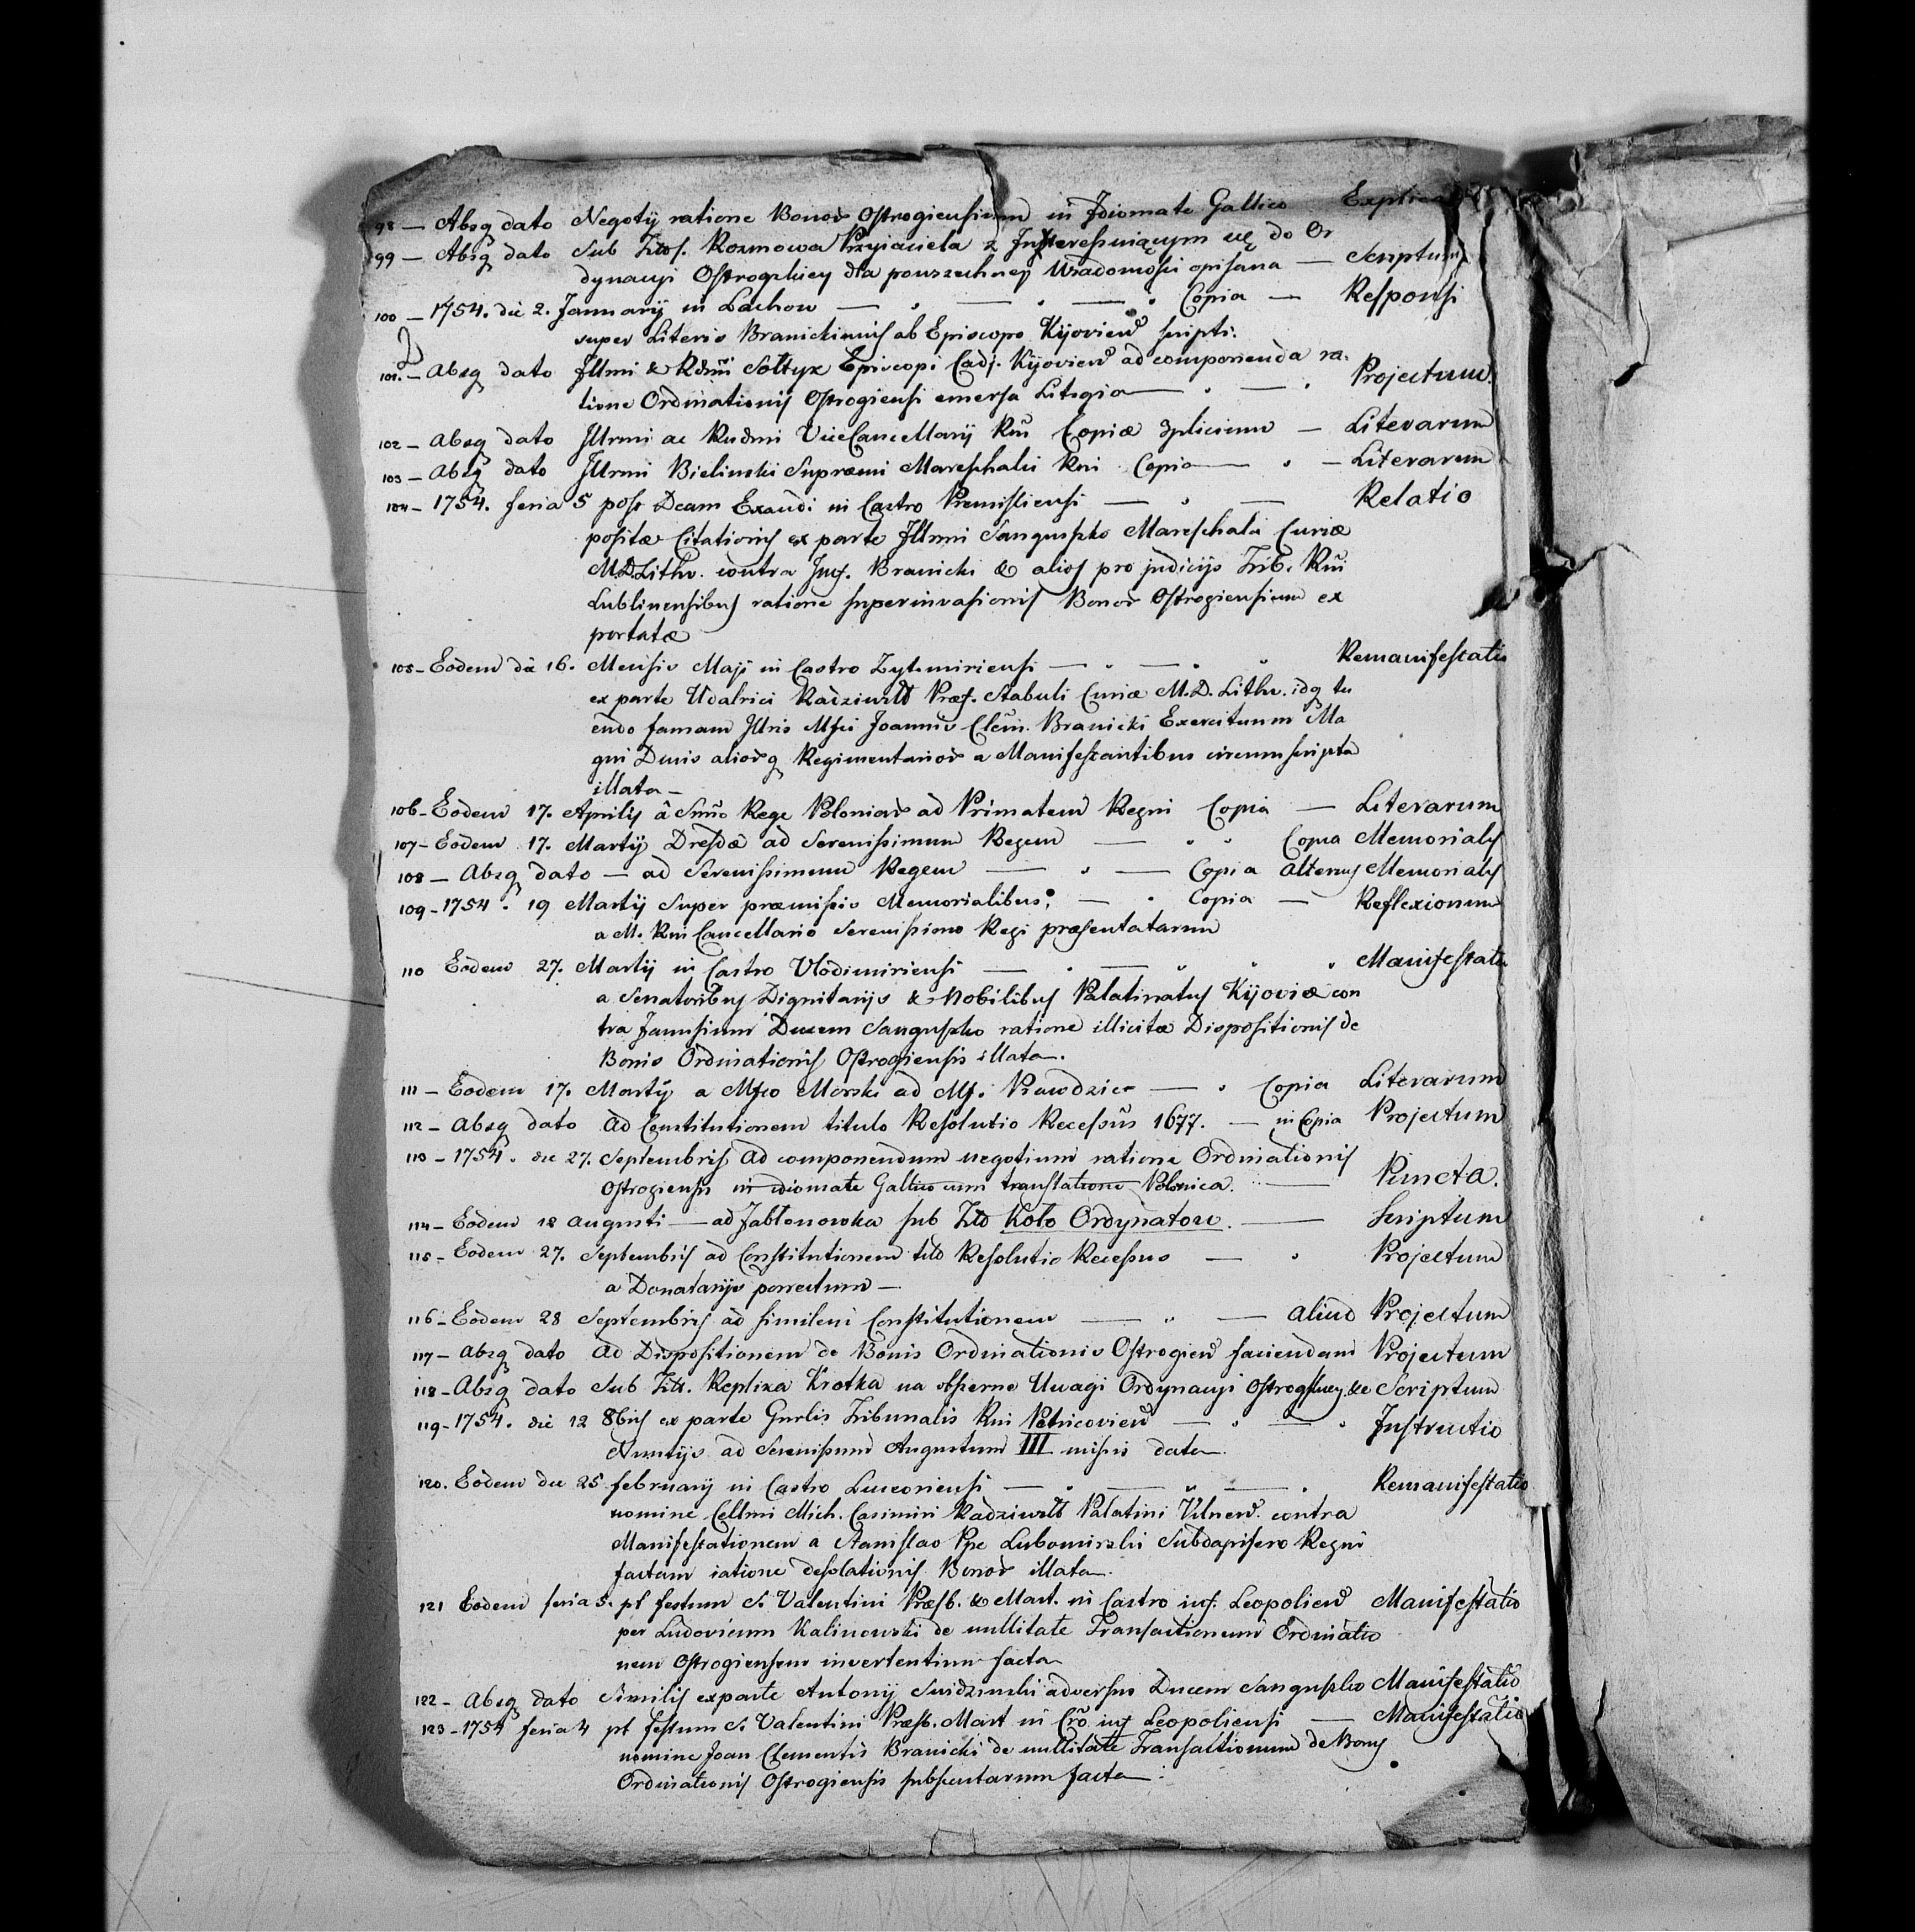 98 — Absq dato Negotij ratione Bonor Ostrogiensium in Idiomate Gallico
99 — Absq dato Sub Titos. Rozmowa Przyiaciela z Interessuiącym się do Or Scriptum
dynacyi Ostrogskiey dla powszechney Wiadomości opisana —
100 — 1754. die 2. January in Lachow — " — " — " Copia — Responsi
super Literis Branickianis ab Episcopo Kijovien scripti.
101. — Absq dato Illmi & Rdmi Sołtyk Episcopi Cadj. Kijovien ad componenda ra- Projectum.
tione Ordinationis Ostrogiensi emersa Litigia — " — "
102 — Absq dato Illrmi ac Rndmi ViceCancellarij Rni Copiæ 3plicium — Literarum
103 — Absq dato Illrmi Bielinski Supræmi Mareschalci Rni Copia — " — Literarum
104 — 1754. feria 5 post Dcam Exaudi in Castro Premisliensi — " — Relatio
positæ Citationis ex parte Illrmi Sanguszko Mareschalci Curiæ
M.D.Lithv. contra Jmf. Branicki & alios pro judicijs Trib. Rni
Lublinensibus ratione superinvasionis Bonor Ostrogiensium ex
portatæ
105 — Eodem die 16. Mensis Maji in Castro Zytomiriensi — " — " " Remanifestatio
ex parte Udalrici Radziwiłł Præf. Stabuli Curiæ M.D. Lithv. idq tu
endo famam Illris Mfci Joannis Clem. Branicki Exercituum Ma
gni Ducis aliorq Regimentarior a Manifestantibus circumscripta
illata —
106 — Eodem 17. Aprilis â Smo Rege Poloniar ad Primatem Regni Copia — Literarum
107 — Eodem 17. Martij Dresdæ ad Serenissimum Regem — " " Copia Memorialis
108 — Absq dato — ad Serenissimum Regem — " — Copia alterius Memorialis
109 — 1754. 19 Martij Super præmissis Memorialibus; — " Copia — Reflexionum
a M. Rni Cancellario Serenissimo Regi præsentatarum
110 Eodem 27. Martij in Castro Vlodimiriensi — " — " " " Manifestatio
a Senatoribus Dignitarijs & Nobilibus Palatinatus Kijoviæ con
tra Janusium Ducem Sanguszko ratione illicitæ Dispositionis de
Bonis Ordinationis Ostrogiensis illata.
111 — Eodem 17. Martij a Mfco Morski ad Mf. Prawdzic — " Copia Literarum
112 — Absq dato Ad Constitutionem titulo Resolutio Recessûs 1677. — in Copia Projectum
113 — 1754. die 27. Septembris ad componendum negotium ratione Ordinationis
Ostrogiensis in idiomate Gallico cum translatione Polonica. — Puncta.
114 — Eodem 12 Augusti — ad Jabłonowska sub Tto Koło Ordynatow. — Scriptum
115 — Eodem 27. Septembris ad Constitutionem tito Resolutio Recessus — " Projectum
a Donatarijs porrectum —
116 — Eodem 28 Septembris ad similem Constitutionem — " — aliud Projectum
117 — Absq dato Ad Dispositionem de Bonis Ordinationis Ostrogien faciendam Projectum
118 — Absq dato Sub Titt. Replika Krotka na obszerne Uwagi Ordynacyi Ostrogskiey &c Scriptum
119 — 1754. die 12 8bris ex parte Gnrlis Tribunalis Rni Petricovien — " — " Instructio
Nuntijs ad Serenissmum Augustum III missis data.
120. Eodem die 25 february in Castro Luceoriensi — " — " — " Remanifestatio
nomine Cellmi Mich. Casimiri Radziwiłł Palatini Vilnen. contra
Manifestationem a Stanislao Ppe Lubomirski Subdapifero Regni
factam ratione desolationis Bonor illata.
121 Eodem feria 5. pt festum S. Valentini Præsb. & Mart. in Castro inf. Leopolien Manifestatio
per Ludovicum Kalinowski de nullitate Transactionum Ordinatio
nem Ostrogiensem invertentium facta
122 — Absq dato Similis ex parte Antonij Swidzinski adversus Ducem Sanguszko Manifestatio
123 — 1754 feria 4 pt festum S. Valentini Præsb. Mart in Cro inf Leopoliensi — Manifestatio
nomine Joan Clementis Branicki de nullitate Transactionum de Bonis
Ordinationis Ostrogiensis subsecutarum facta.